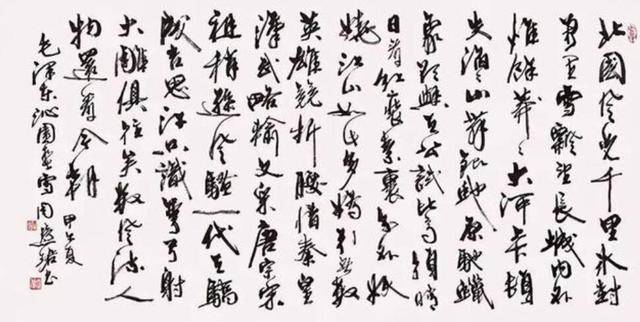 北國風光千里冰封
萬里雪飄望長城內外
惟餘莽々大河上下頓
失滔々山舞銀蛇原馳蠟
象欲與天公試比高須晴
日看紅裝素裹分外妖
嬈江山如此多嬌引無數
英雄競折腰惜秦皇
漢武略輸文采唐宗宋
祖稍遜風騷一代天驕
成吉思汗只識彎弓射
大雕俱往矣數風流人
物還看今朝 甲夏
毛澤東沁園春雪周書